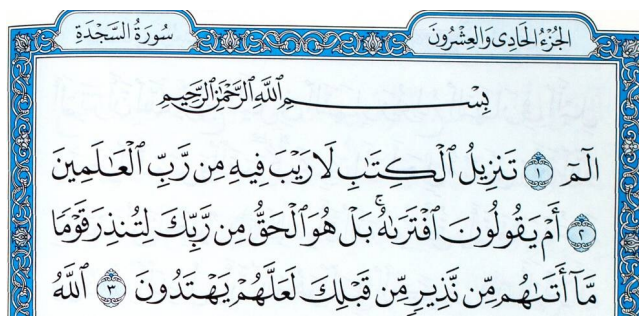 الجُزْءُ الحَادِى وَالعِشْرُونَ
سُورَةُ السَّجْدَةِ
بِسْمِ ٱللَّهِ ٱلرَّحْمَٰنِ ٱلرَّحِيمِ
الٓمٓ ١ تَنزِيلُ ٱلْكِتَٰبِ لَا رَيْبَ فِيهِ مِن رَّبِّ ٱلْعَٰلَمِينَ
٢ أَمْ يَقُولُونَ ٱفْتَرَىٰهُ ۚ بَلْ هُوَ ٱلْحَقُّ مِن رَّبِّكَ لِتُنذِرَ قَوْمًا
مَّآ أَتَىٰهُم مِّن نَّذِيرٍ مِّن قَبْلِكَ لَعَلَّهُمْ يَهْتَدُونَ ٣ ٱللَّهُ